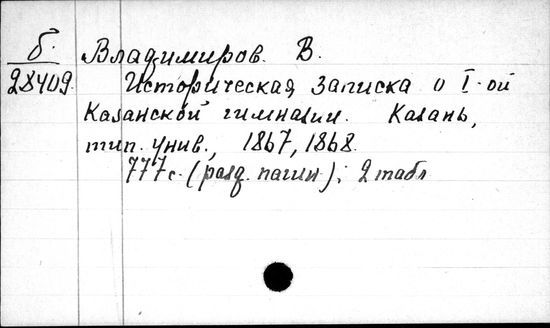 б. Владимиров. В.
28409. Историческая записка о I-ой
Казанской гимназии. Казань,
тип. унив., 1867, 1868.
777с. (разд. пагин); 2 табл